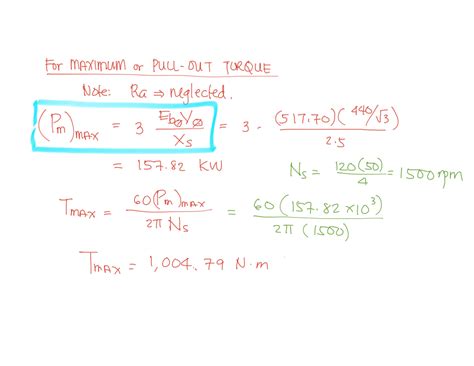 For MAXIMUM or PULL-OUT TORQUE
Note: Ra ⇒ neglected.
(Pm)MAX = 3 EbøVø/Xs = 3 · (517.70)(440/√3)/2.5
= 157.82 KW
Ns = 120(50)/4 = 1500 rpm
TMAX = 60(Pm)max/2π Ns = 60(157.82 x10³)/2π(1500)
TMAX = 1,004.79 N·m